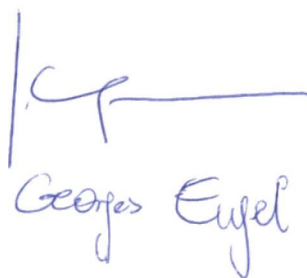 Georges Engel